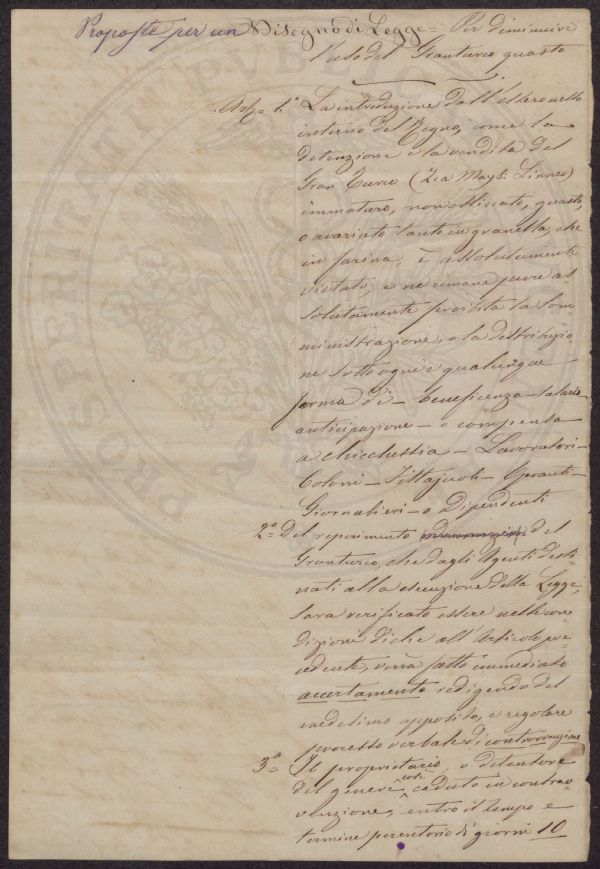 Proposte per un Disegno di Legge = Per diminuire
l'uso del Granturco guasto
Art= 1.° La introduzione dall'estero nello
interno del Regno, come la
detenzione e la vendita del
Gran Turco (Zea Mays. Linneo)
immaturo, non essiccato, guasto,
o avariato tanto in granella, che
in farina, è assolutamente
vietato; e ne rimane pure as
solutamente proibita la som
ministrazione, o la distribuzio
ne sotto ogni e qualunque
forma di - beneficenza - salario -
anticipazione - o compenso
a chicchessia - Lavoratori -
Coloni - Fittajuoli - Operanti -
Giornalieri - o Dipendenti
2.° Del reperimento del
Granturco, che dagli Agenti desti
nati alla esecuzione della Legge,
sara verificato essere nelle con
dizioni di che all'Articolo pre
cedente, verrà fatto immediato
accertamento redigendo del
medesimo apposito, e regolare
processo verbale di contravenzione
3.° Il proprietario, o detentore
del genere così caduto in contrav
venzione, entro il tempo e
termine perentorio di giorni 10